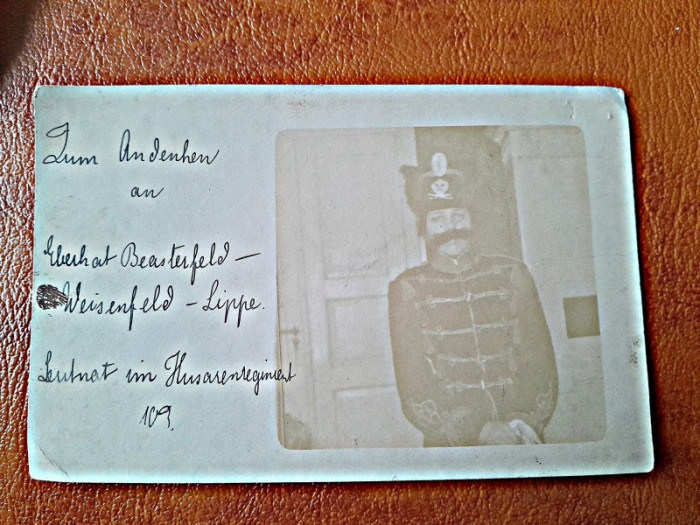 Zum Andenhen
an
Eberhat Beasterfeld –
Weisenfeld – Lippe.
Leutnat im Husarenregiment
109.